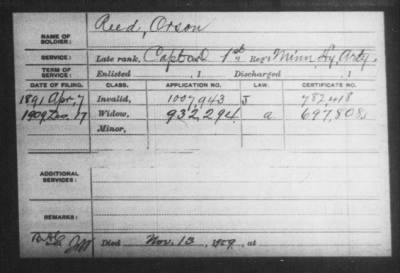 Reed, Orson
NAME OF SOLDIER:
SERVICE: Late rank, Capt Co. D 1st Reg't Minn Hy. Arty.
TERM OF SERVICE: Enlisted , 1 Discharged , 1
DATE OF FILING. CLASS. APPLICATION NO. LAW. CERTIFICATE NO.
1891 Apr. 7 Invalid, 1007,943 J 782,418
1909 Dec. 7 Widow, 932,294 a 697,808
Minor,
ADDITIONAL SERVICES:
REMARKS:
Died Nov. 13, 1909, at